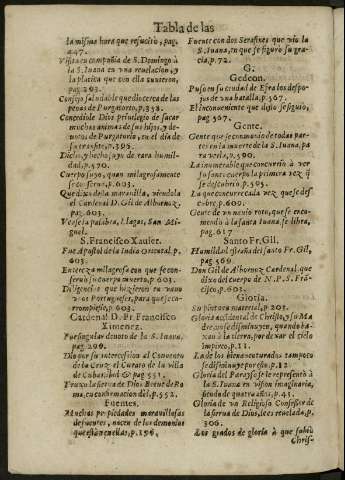 Tabla de las
la misma hora que resucitò, pag.
447.
Vista en compañia de S. Domingo à
la S. Iuana en vna reuelacion, y
la platica que con ella tuuieron,
pag. 203.
Consejo saludable que dio cerca de las
penas de Purgatorio, p. 358.
Concediole Dios priuilegio de sacar
muchas animas de sus hijos, y de-
uotos de Purgatorio, en el dia de
su transito, p. 395.
Dicho, y hecho, y de rara humil-
dad, p. 570.
Cuerpo suyo, quan milagrosamente
se conserua, p. 603.
Que dixo desta marauilla, viendola
el Cardenal D. Gil de Albornoz,
pag. 603.
Vease la palabra, llagas, San Mi-
guel.
S. Francisco Xauier.
Fue Apostol de la India Oriental, p.
603.
Entereza milagrosa con que se con-
seruò su cuerpo muerto, p. 603.
Diligencias que hizieron en vano
los Portugueses, para que se co-
rrompiesse, p. 603.
Cardenal D. Fr. Francisco
Ximenez.
Fue singular deuoto de la S. Iuana,
pag. 299.
Diò por su intercession al Conuento
de la Cruz el Curato de la villa
de Cubas, ibid. & pag. 551.
Truxo la sierua de Dios Breue de Ro
ma, en confirmacion dèl, p. 552.
Fuentes.
Muchas propiedades marauillosas
de fuentes, nacen de los demonios
que està en ellas, p. 196.
Fuente con dos Serafines que viò la
S. Iuana, en que se figurò su gra-
cia, p. 72.
G.
Gedeon.
Puso en su ciudad de Efra los despo-
jos de vna batalla, p. 567.
El inconueniente que desto se siguiò,
pag. 567.
Gente.
Gente que se comouiò de todas par-
tes en la muerte de la S. Iuana, pa
ra verla, p. 590.
La innumerable que concurriò à ver
su santo cuerpo la primera vez q̃
se descubriò, p. 595.
La que concurre cada vez que se des-
cubre, p. 600.
Gente de vn nauio roto, que se enco-
mendò à la santa Iuana, se libra,
pag. 617
Santo Fr. Gil.
Humildad estraña del santo Fr. Gil,
pag. 569.
Don Gil de Albornoz Cardenal, que
dixo del cuerpo de N. P. S. Frã-
cisco, p. 603.
Gloria.
Su pintura material, p. 203.
Gloria accidental de Christo, y su Ma
dre, no se disminuyen, quando ba-
xan à la tierra, por dexar el cielo
impireo, p. 11.
La de los bienauenturados tampoco
se disminuye por esso, p. 12.
Gloria del Parayso se le representò à
la S. Iuana en vision imaginaria,
siendo de quatro años, p. 41.
Gloria de vn Religioso Confessor de
la sierua de Dios, le es reuelada, p.
306.
Los grados de gloria à que subiò
Chris-